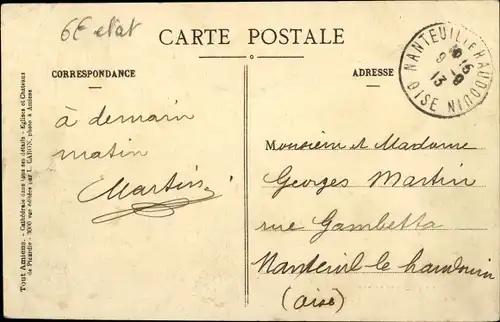 6E etat
CARTE POSTALE
CORRESPONDANCE
ADRESSE
NANTEUIL-LE-HAUDOUIN
OISE
à demain
matin
Martin
Monsieur et Madame
Georges Martin
rue Gambetta
Nanteuil-le haudouin
(Oise)
Tout Amiens. - Cathédrale dans tous ses détails - Eglises et Chateaux
de Picardie - 3000 vues éditées par L. CARON, photo à Amiens